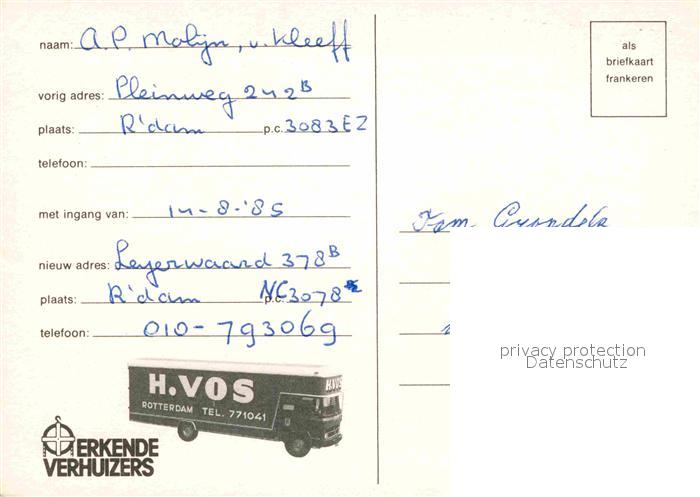 naam: A.P. Molijn, v. Kleeff
vorig adres: Pleinweg 242B
plaats: R'dam p.c. 3083EZ
telefoon:
met ingang van: 14-8-'85
nieuw adres: Leyerwaard 378B
plaats: R'dam NC 3078
telefoon: 010-793069
H.VOS
H.VOS
ROTTERDAM TEL. 771041
ERKENDE
VERHUIZERS
als
briefkaart
frankeren
Fam.
privacy protection
Datenschutz